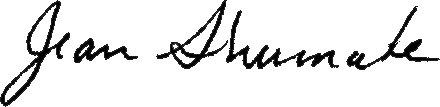 Jean Shumate